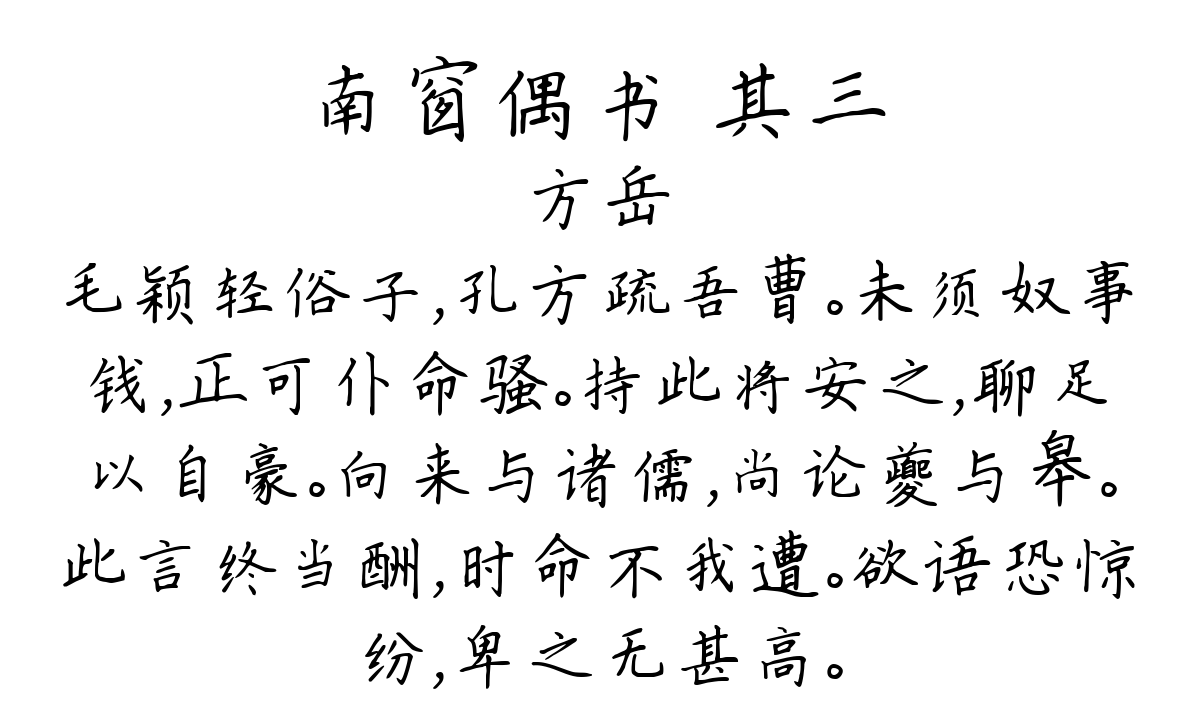 南窗偶书 其三
方岳
毛颖轻俗子,孔方疏吾曹。未须奴事
钱,正可仆命骚。持此将安之,聊足
以自豪。向来与诸儒,尚论夔与皋。
此言终当酬,时命不我遭。欲语恐惊
纷,卑之无甚高。